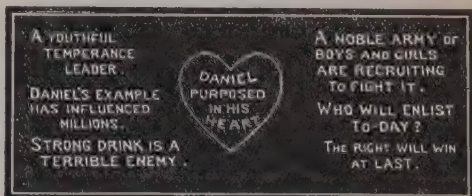 A YOUTHFUL
TEMPERANCE
LEADER.
DANIEL'S EXAMPLE
HAS INFLUENCED
MILLIONS.
STRONG DRINK IS A
TERRIBLE ENEMY.
DANIEL
PURPOSED
IN HIS
HEART
A NOBLE ARMY OF
BOYS AND GIRLS
ARE RECRUITING
TO FIGHT IT.
WHO WILL ENLIST
TO-DAY?
THE RIGHT WILL WIN
AT LAST.